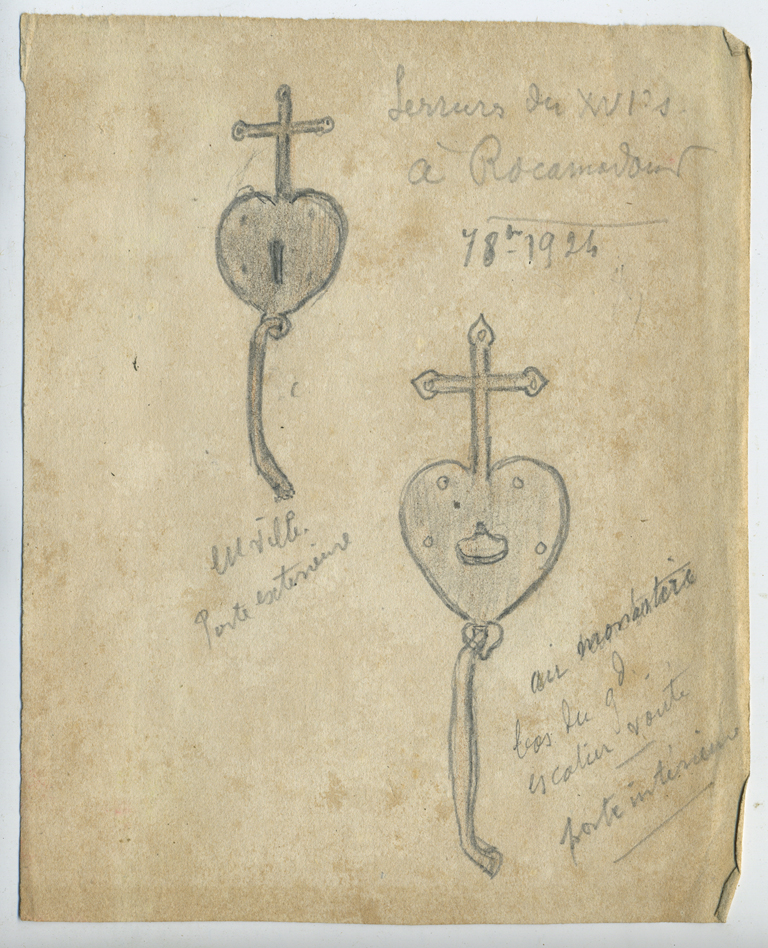 Serrures du XVIe s.
à Rocamadour
7 8bre 1924
en ville.
Porte exterieure
au monastère
bas du gd
escalier voute
porte intérieure